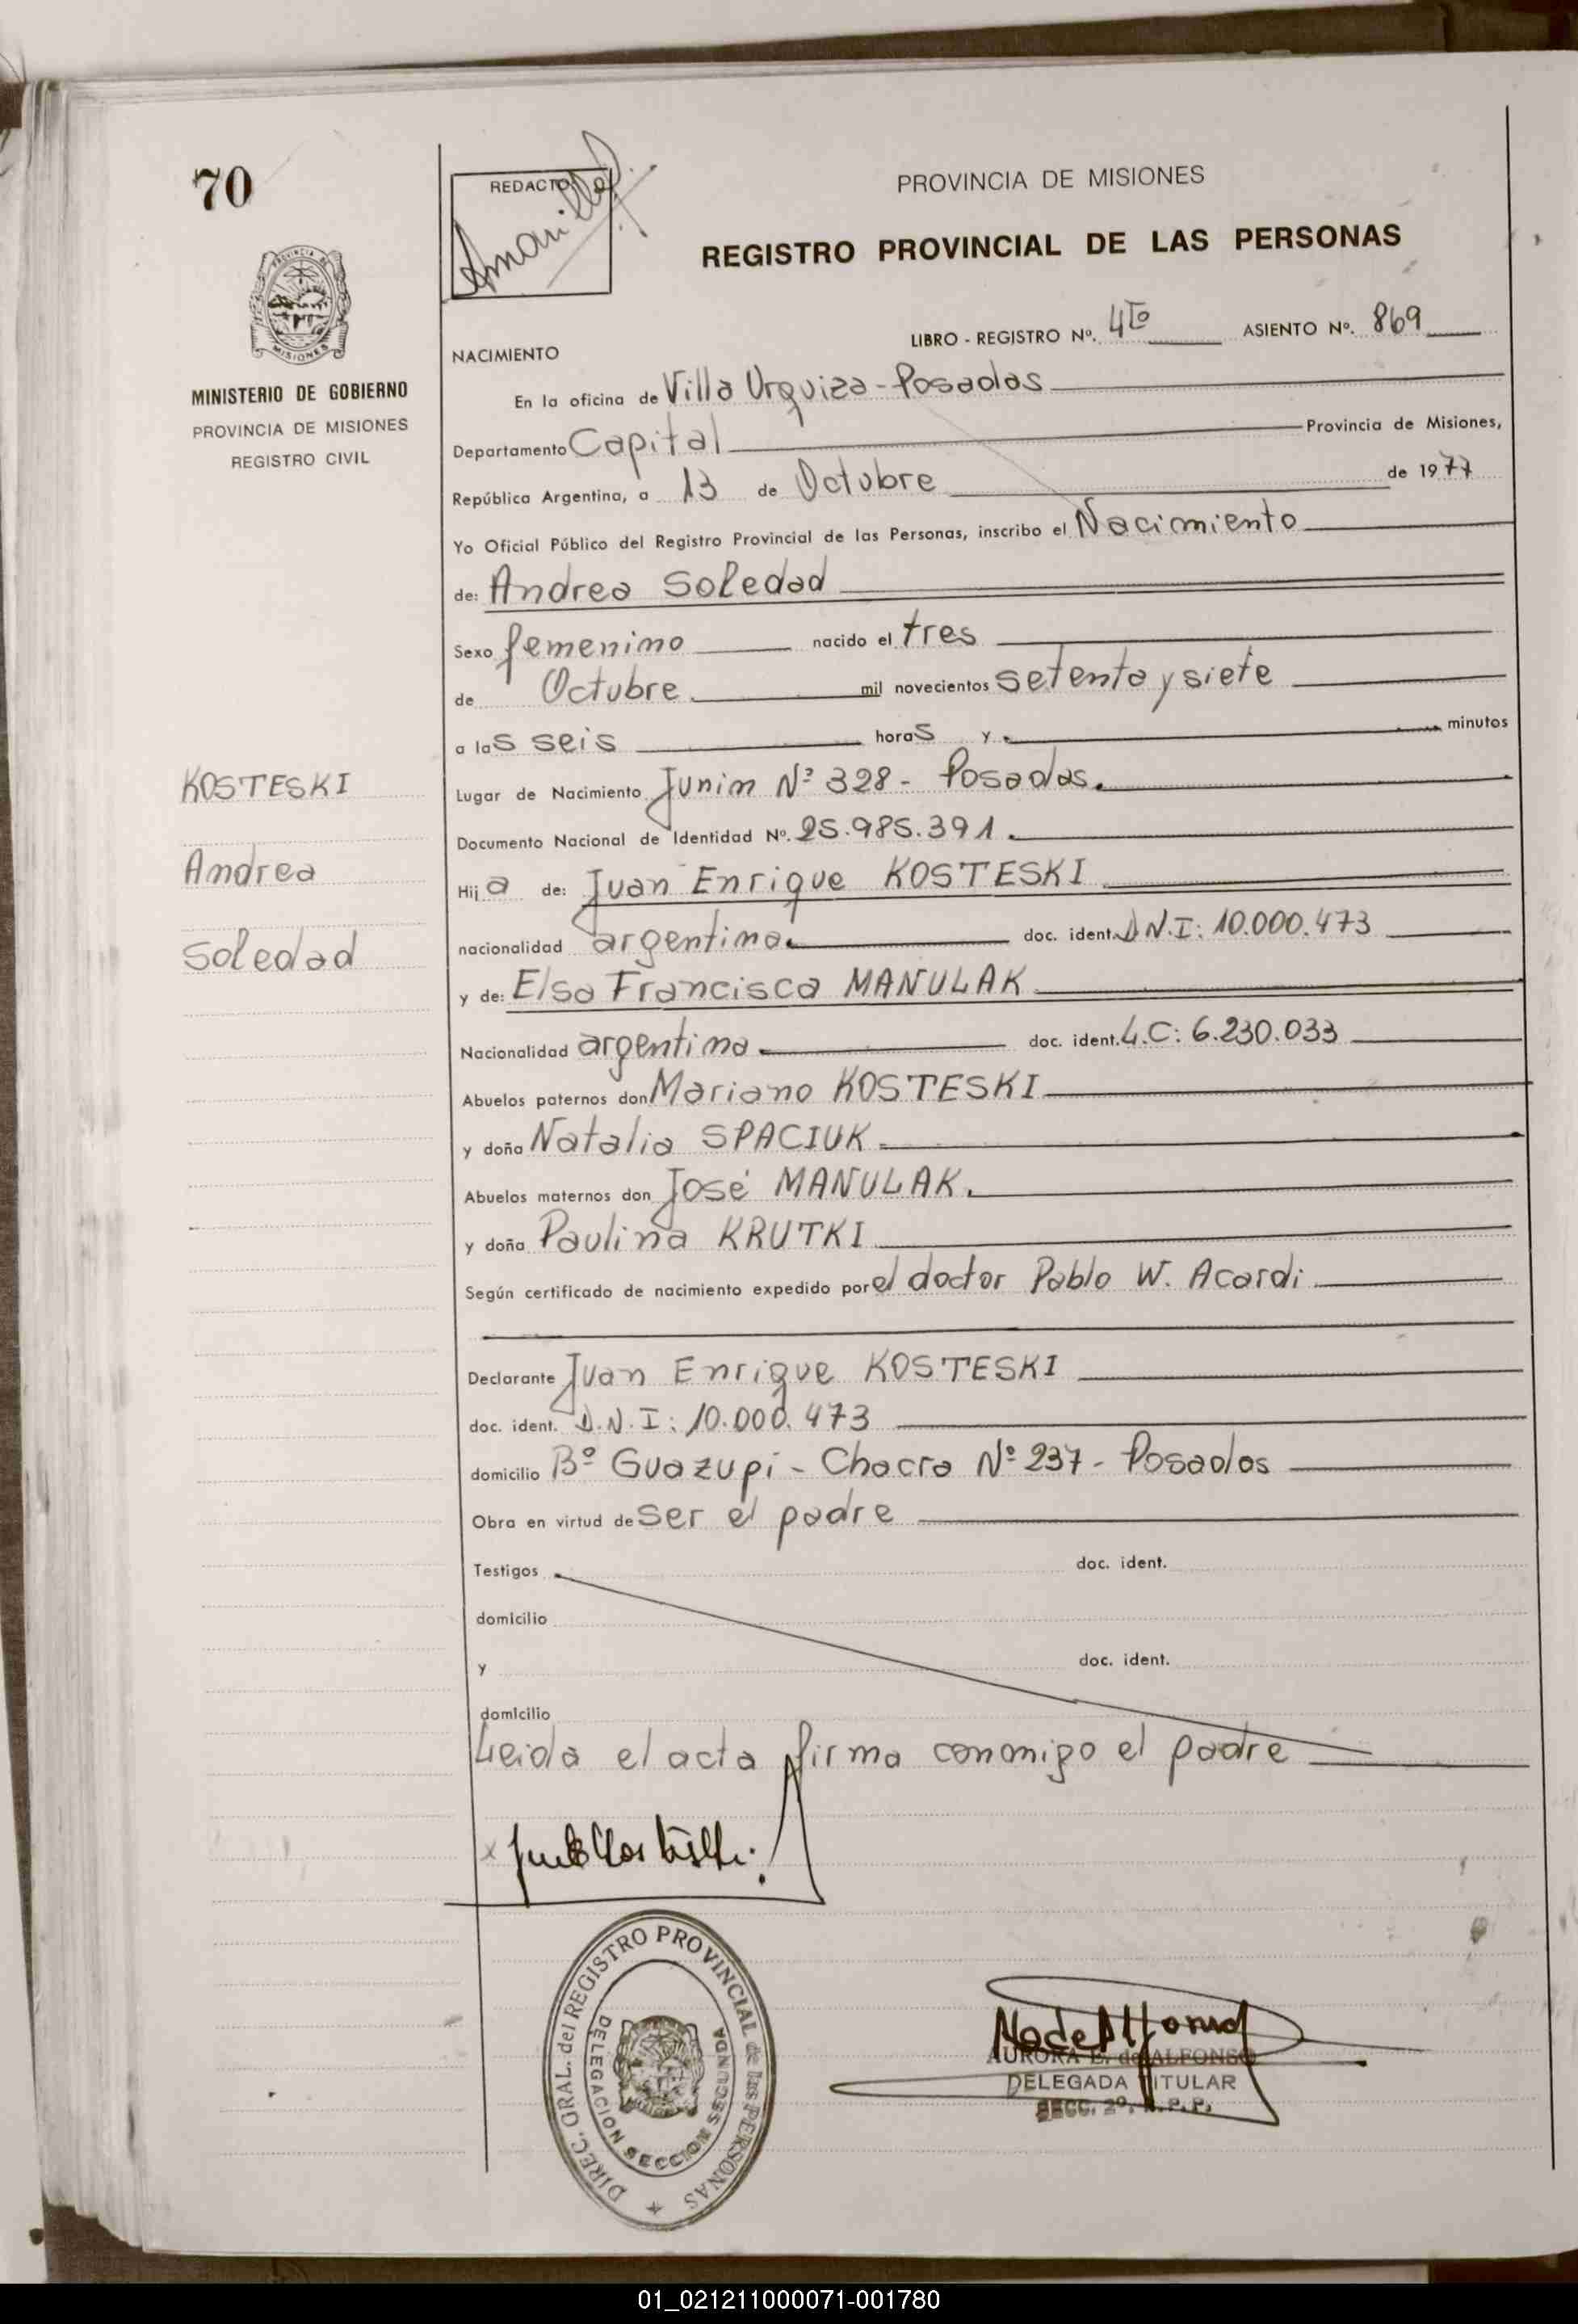 70
REDACTO
PROVINCIA DE MISIONES
REGISTRO PROVINCIAL DE LAS PERSONAS
LIBRO - REGISTRO Nº. 4to ASIENTO Nº. 869
PROVINCIA DE
MISIONES
MINISTERIO DE GOBIERNO
PROVINCIA DE MISIONES
REGISTRO CIVIL
NACIMIENTO
En la oficina de Villa Urquiza - Posadas
Departamento Capital Provincia de Misiones,
República Argentina, a 13 de Octubre de 1977
Yo Oficial Público del Registro Provincial de las Personas, inscribo el Nacimiento
de: Andrea Soledad
Sexo femenino nacido el tres
de Octubre mil novecientos setenta y siete
a las seis horas y minutos
Lugar de Nacimiento Junin Nº 328 - Posadas.
Documento Nacional de Identidad Nº. 25.985.391.
Hija de: Juan Enrique KOSTESKI
nacionalidad argentina. doc. ident. D.N.I: 10.000.473
y de: Elsa Francisca MANULAK
Nacionalidad argentina doc. ident. L.C: 6.230.033
Abuelos paternos don Mariano KOSTESKI
y doña Natalia SPACIUK
Abuelos maternos don José MANULAK.
y doña Paulina KRUTKI
Según certificado de nacimiento expedido por el doctor Pablo W. Acardi
Declarante Juan Enrique KOSTESKI
doc. ident. D.N.I: 10.000.473
domicilio Bº Guazupi - Chacra Nº 237 - Posadas
Obra en virtud de ser el padre
Testigos doc. ident.
domicilio
y doc. ident.
domicilio
Leida el acta firma conmigo el padre
KOSTESKI
Andrea
Soledad
DIREC. GRAL. del REGISTRO PROVINCIAL de las PERSONAS
DELEGACION SECCION SEGUNDA
AURORA E. de ALFONSO
DELEGADA TITULAR
SECC. 2º. R.P.P.
01_021211000071-001780